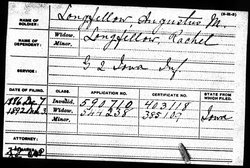 (3-145-a)
NAME OF SOLDIER: Longfellow, Augustus M.
NAME OF DEPENDENT: Widow, Longfellow, Rachel
Minor,
SERVICE: G 2 Iowa Inf.
DATE OF FILING. CLASS. APPLICATION NO. CERTIFICATE NO. STATE FROM WHICH FILED.
1886 Dec 7 Invalid, 590710 403118
1892 Widow, 541238 385107 Iowa
Minor,
ATTORNEY: